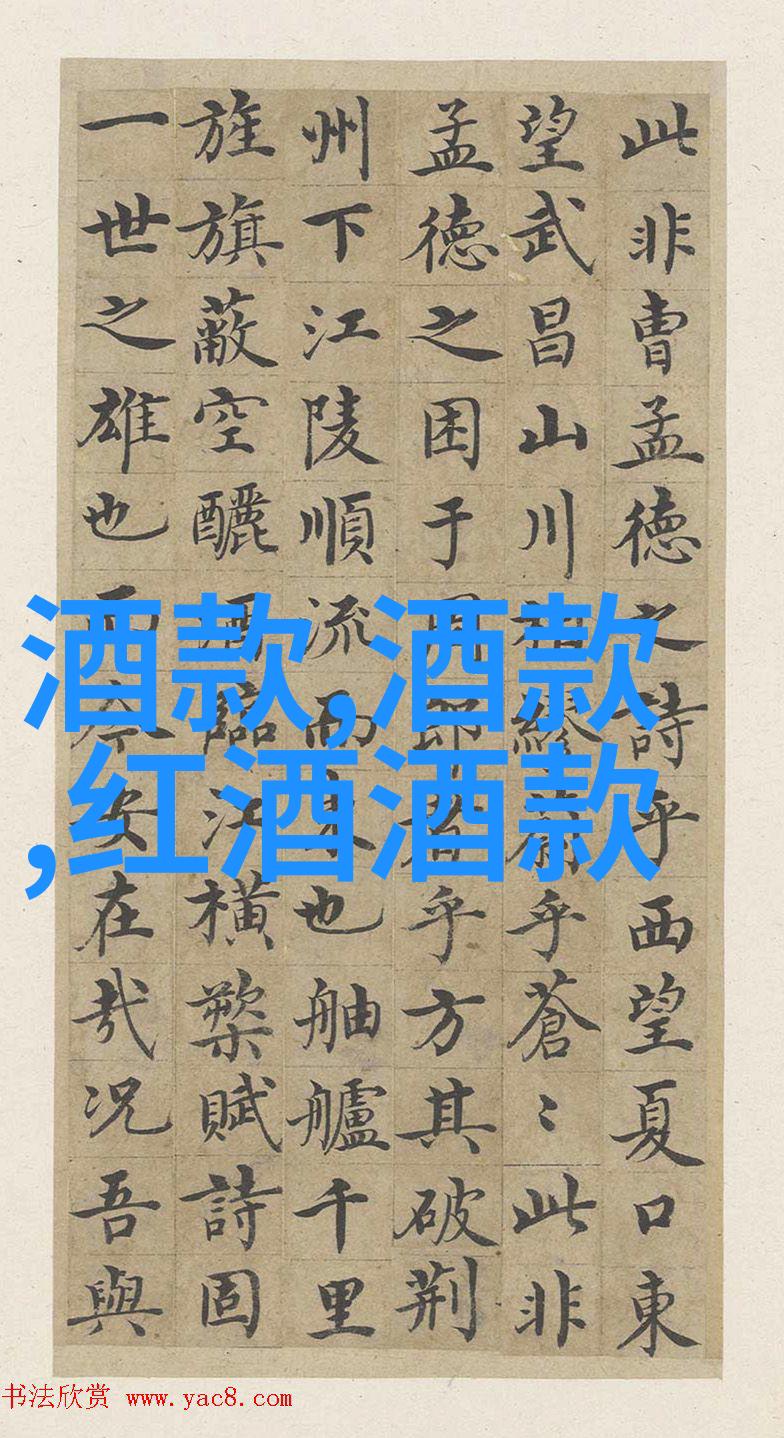 此非曹孟德之詩乎西望夏口東
望武昌山川相繆蔚乎蒼〻此非
孟德之困于周郎者乎方其破荊
州下江陵順流而東也舳艫千里
旌旗蔽空釃酒臨江橫槊賦詩固
一世之雄也而今安在哉况吾與
酒款,酒款
,红酒酒款
书法欣赏 www.yac8.com